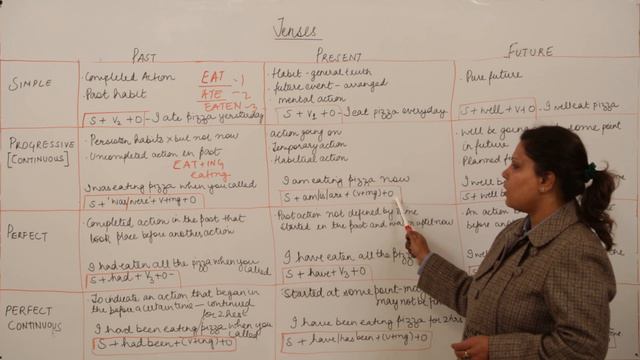 Tenses
PAST PRESENT FUTURE
SIMPLE
• Completed Action
• Past habit
EAT -1
ATE -2
EATEN -3
S + V2 + O - I ate pizza yesturday
• Habit - general truth
• future event - arranged
• mental action
- I eat pizza everyday
• Pure future
S + well + V1 + O - I will eat pizza
PROGRESSIVE
[CONTINUOUS]
• Persistin habits x but not now
• Uncompleted action in past
EAT+ING
eating
I was eating pizza when you called
S + 'was/were' + V+ing + O
action going on
Temporary action
Habitual action
I am eating pizza now
S + am/is/are + (V+ing) + O
• Well be going
some point
in future
• Planned
I well be
S + well be
PERFECT
• Completed action in the past that
took place before another action
I had eaten all the pizza when you
called
S + had + V3 + O
Past action not defined by time
Started in the past and
now
I have eaten all the
S + have + V3 + O
An action
before
I well
S +
PERFECT
CONTINUOUS
• To indicate an action that began in
the before a certain time - continued
for 2 hrs
I had been eating pizza when you
called
S + had been + (V+ing) + O
Started at some point
may not be
I have been eating pizza for 2 hrs
S + have/has been + (V+ing) + O